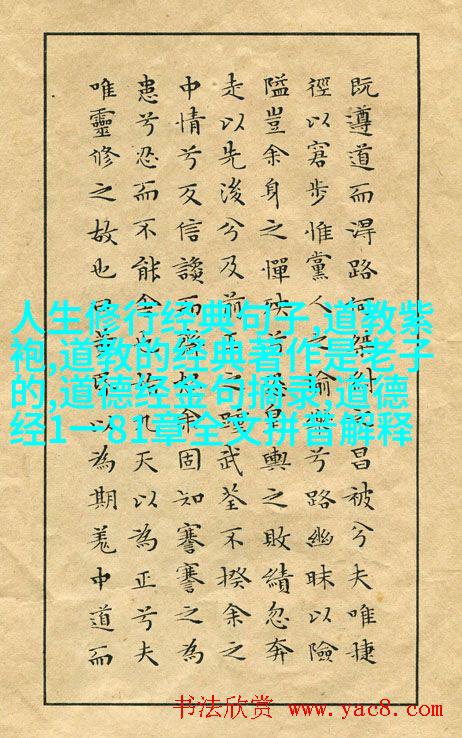 既遵道而淂路何桀紂昌被兮夫唯捷
徑以窘步惟黨人之偷樂兮路幽昧以險
隘豈余身之憚殃皇輿之敗績忽奔
走以先後兮及前王之踵武荃不揆余之
中情兮反信讒而余固知謇謇之為
患兮忍而不能舍也九天以為正兮夫
唯靈修之故也曰以為期羌中道而
人生修行经典句子,道教紫
袍,道教的经典著作是老子
的,道德经金句摘录,道德
经1一81章全文拼音解释
书法欣赏 www.yac8.com